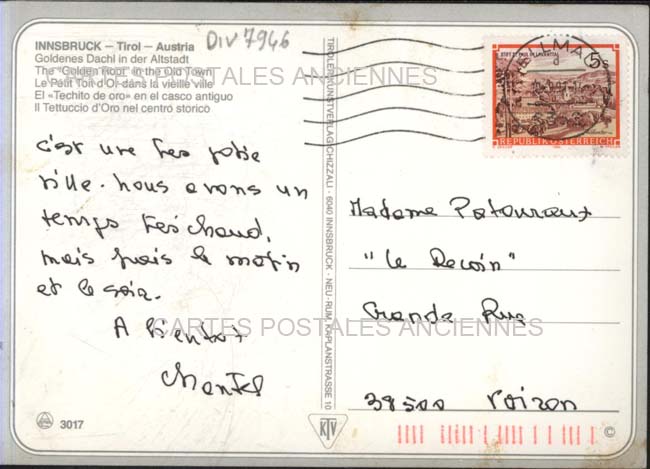 INNSBRUCK – Tirol – Austria
Goldenes Dachl in der Altstadt
The "Golden Roof" in the Old Town
Le Petit Toit d'Or dans la vieille ville
El «Techito de oro» en el casco antiguo
Il Tettuccio d'Oro nel centro storico
DIV 7946
c'est une très jolie
ville. nous avons un
temps très chaud,
mais frais le matin
et le soir.
A bientot
Chantal
3017
TIROLER KUNSTVERLAG CHIZZALI · 6040 INNSBRUCK - NEU-RUM, KAPLANSTRASSE 10
KTV
STIFT ST. PAUL IM LAVANTTAL
5s
REPUBLIK ÖSTERREICH
Madame
"Le Recoin"
Grande Rue
38500 Voiron
©
CARTES POSTALES ANCIENNES
CARTES POSTALES ANCIENNES